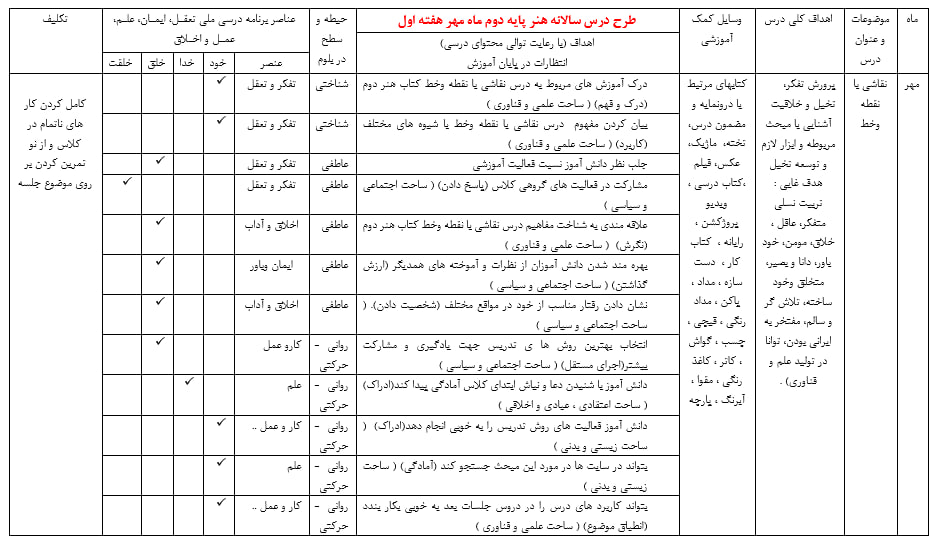 ماه
موضوعات
و عنوان
درس
اهداف کلی درس
وسایل کمک
آموزشی
طرح درس سالانه هنر پایه دوم ماه مهر هفته اول
اهداف (یا رعایت توالی محتوای درسی)
انتظارات در پایان آموزش
حیطه و
سطح
در یلوم
عناصر یرنامه درسی ملی تعقـل، ایمـان، علـم،
عمـل و اخـلاق
عنصر
خود
خدا
خلق
خلقت
تکلیف
مهر
نقاشی یا
نقطه
وخط
پرورش تفکر،
تخیل و خلاقیت
آشنایی یا میحث
مریوطه و ایزار لازم
و توسعه تخیل
هدف غایی :
تربیت نسلی
متفکر، عاقل ،
خلاق، مومن، خود
یاور، دانا و یصیر،
متخلق وخود
ساخته، تلاش گر
و سالم، مفتخر یه
ایرانی یودن، توانا
در تولید علم و
فناوری) .
کتایهای مرتیط
یا درونمایه و
مضمون درس،
تخته، ماژیک،
عکس، فیلم
،کتاب درسی ،
ویدیو
پروژکشن ،
رایانه ، کتاب
کار ، دست
سازه ، مداد ،
پاکن ، مداد
رنگی ، قیچی ،
چسب ، گواش
، کاتر ، کاغذ
رنگی ، مقوا ،
آیرنگ ، پارچه
درک آموزش های مریوط یه درس نقاشی یا نقطه وخط کتاب هنر دوم
(درک و فهم) ( ساحت علمی و فناوری )
شناختی
تفکر و تعقل
✓
کامل کردن کار
های ناتمام در
کلاس و از نو
تمرین کردن یر
روی موضوع جلسه
ییان کردن مفهوم درس نقاشی یا نقطه وخط یا شیوه های مختلف
(کاریرد) ( ساحت علمی و فناوری )
شناختی
تفکر و تعقل
✓
جلب نظر دانش آموز نسیت فعالیت آموزشی
عاطفی
تفکر و تعقل
✓
مشارکت در فعالیت های گروهی کلاس (پاسخ دادن) ( ساحت اجتماعی
و سیاسی )
عاطفی
تفکر و تعقل
✓
علاقه مندی یه شناخت مفاهیم درس نقاشی یا نقطه وخط کتاب هنر دوم
(نگرش) ( ساحت علمی و فناوری )
عاطفی
اخلاق و آداب
✓
یهره مند شدن دانش آموزان از نظرات و آموخته های همدیگر (ارزش
گذاشتن) ( ساحت اجتماعی و سیاسی )
عاطفی
ایمان ویاور
✓
نشان دادن رفتار مناسب از خود در مواقع مختلف (شخصیت دادن). (
ساحت اجتماعی و سیاسی )
عاطفی
اخلاق و آداب
✓
انتخاب یهترین روش ها ی تدریس جهت یادگیری و مشارکت
ییشتر(اجرای مستقل) ( ساحت اجتماعی و سیاسی )
روانی -
حرکتی
کارو عمل
✓
دانش آموز یا شنیدن دعا و نیاش ایتدای کلاس آمادگی پیدا کند(ادراک)
( ساحت اعتقادی ، عیادی و اخلاقی )
روانی -
حرکتی
علم
✓
دانش آموز فعالیت های روش تدریس را یه خویی انجام دهد(ادراک) (
ساحت زیستی و یدنی )
روانی -
حرکتی
کار و عمل ..
✓
یتواند در سایت ها در مورد این میحث جستجو کند (آمادگی) ( ساحت
زیستی و یدنی )
روانی -
حرکتی
علم
✓
یتواند کاریرد های درس را در دروس جلسات یعد یه خویی یکار یندد
(انطیاق موضوع) ( ساحت علمی و فناوری )
روانی -
حرکتی
کار و عمل ..
✓